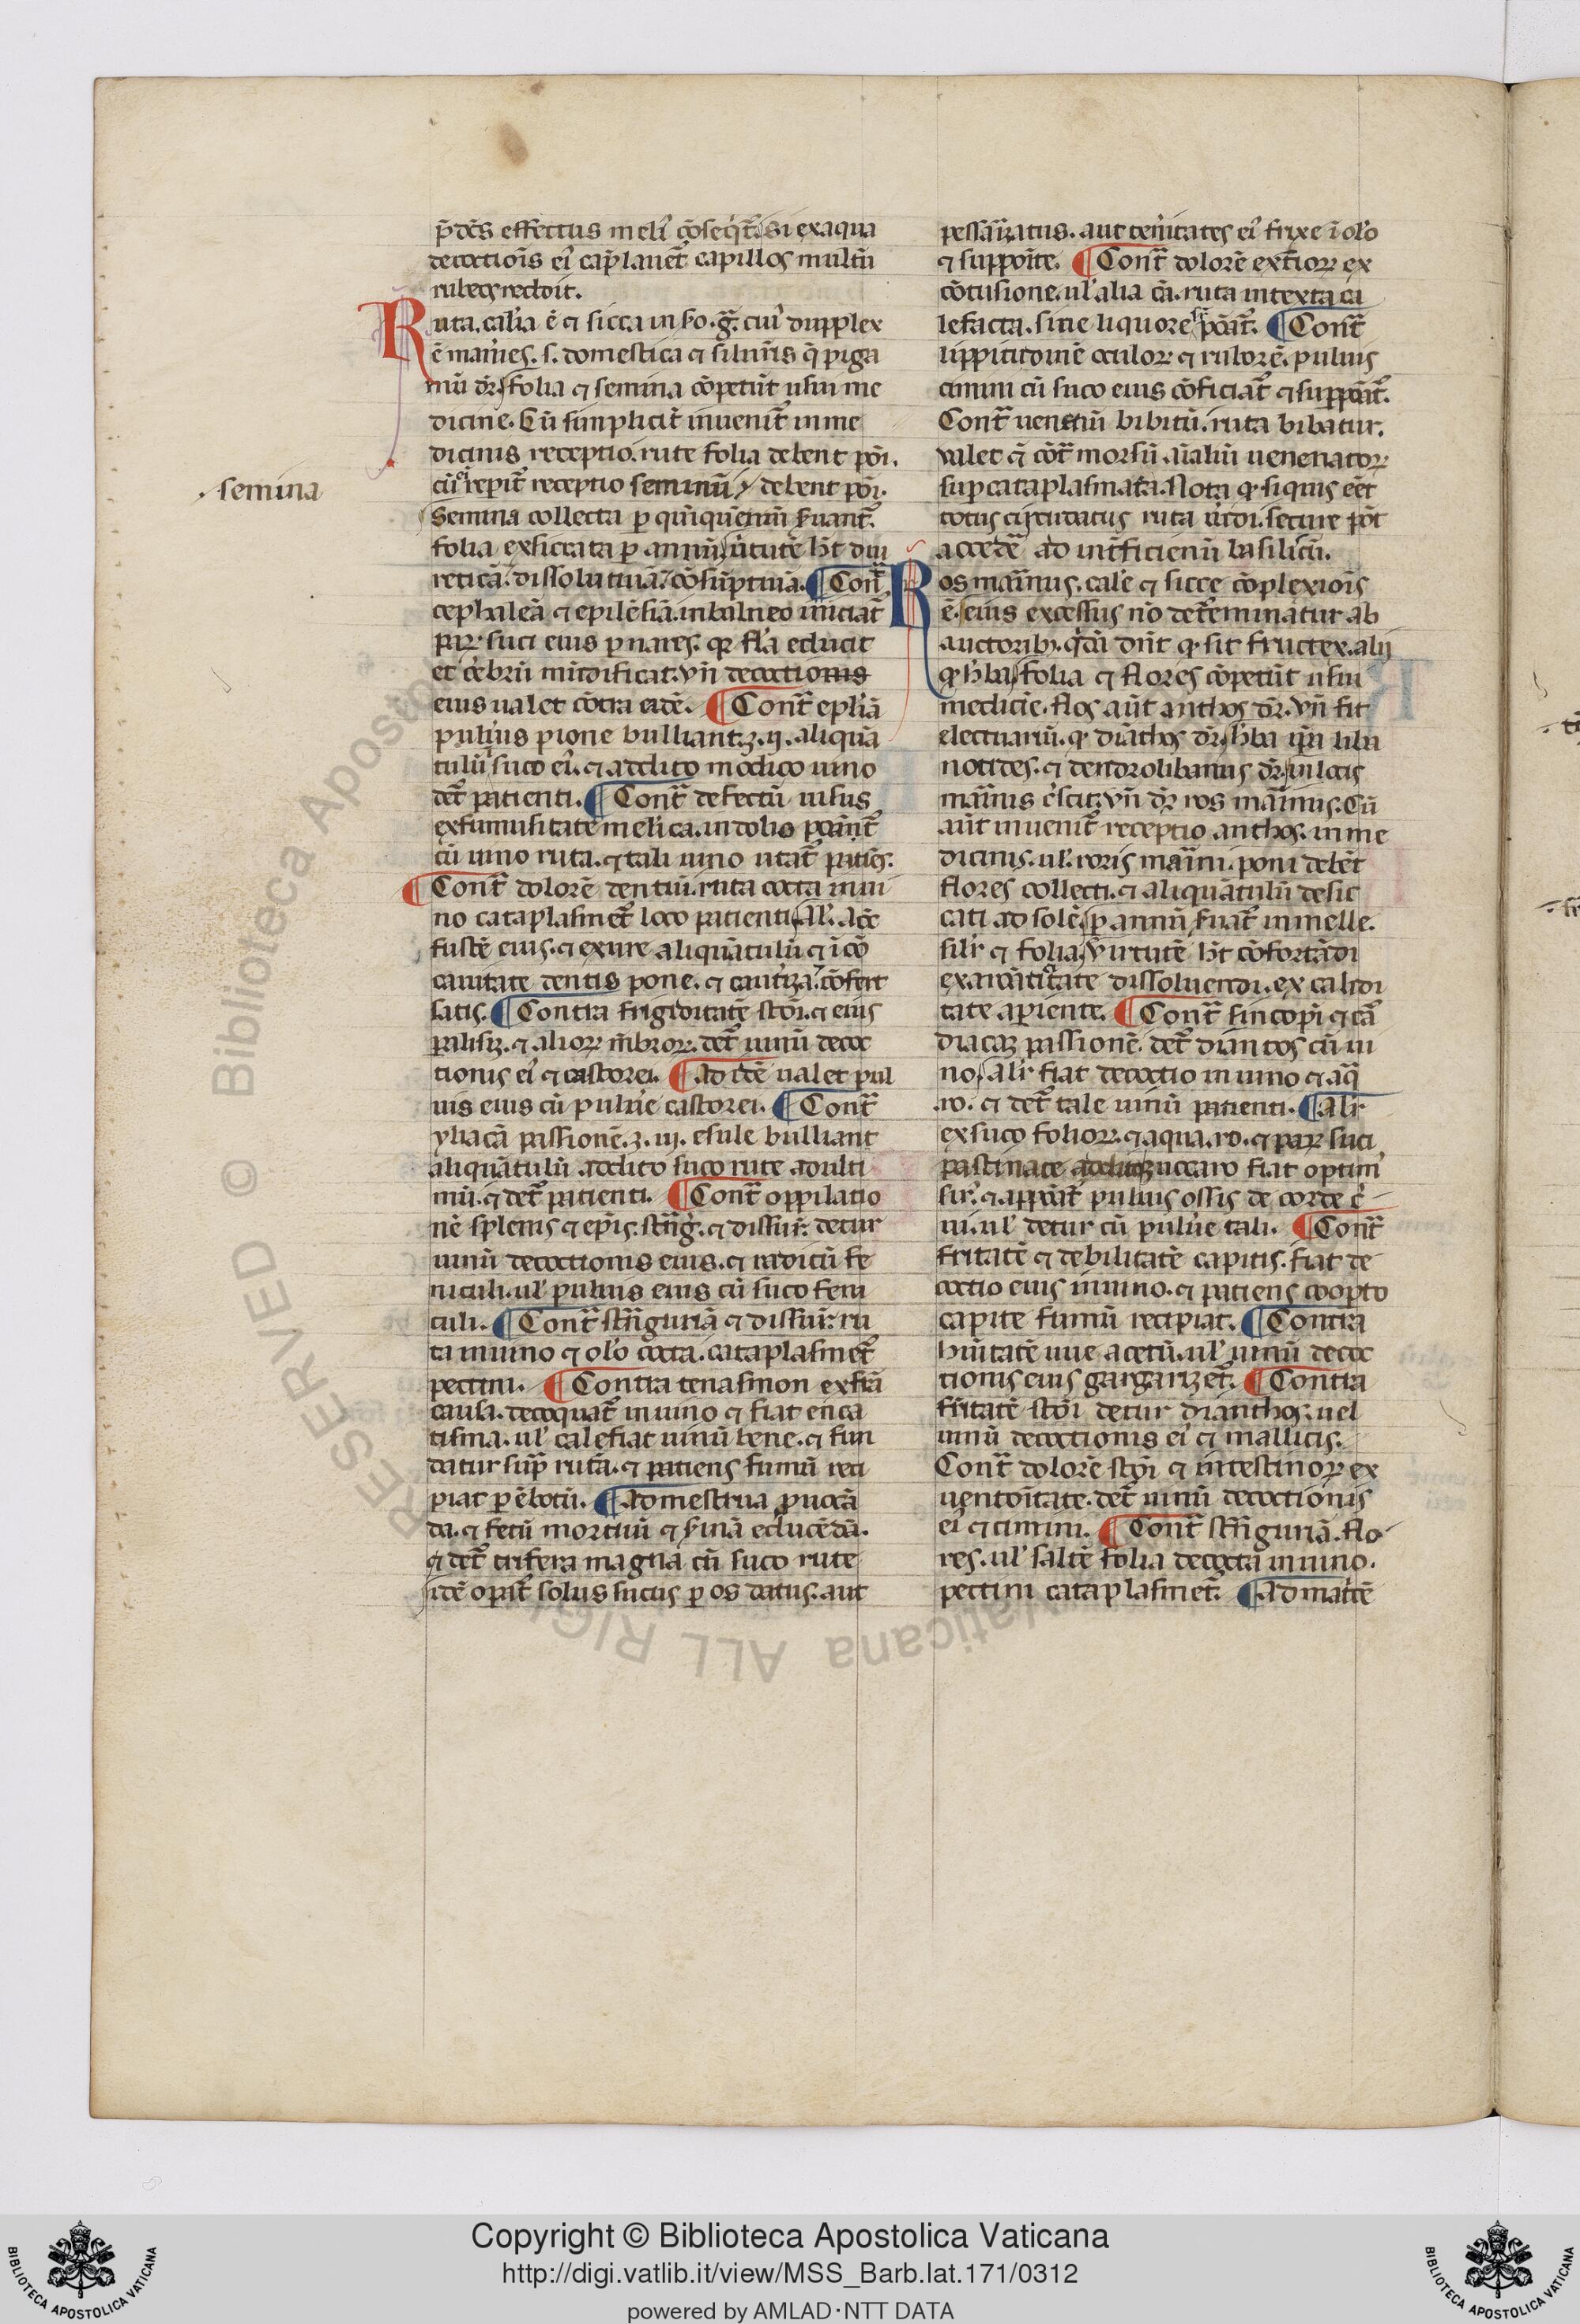 p̄dc̄s effectus meli᷒ cōseqr̄t. si ex aqua
decoctiōis ei᷒ cap̄ lauet᷒ capillos multū
rubeos reddit.
Ruta. cal̓ia ē ⁊ sicca in ẜo. g͛. cui᷒ dupplex
ē man̓ies. s. domestica ⁊ siluēs q̄ piga
mū dr̄. folia ⁊ semina cōpetūt usui me
dicine. Cū simplicit᷒ inuenit᷒ in me
dicinis receptio. rute folia debent pōi.
cū repit᷒ receptio seminū debent pōi.
semina
Semina collecta p̱ quinquēniū ẜuant᷒.
folia exsiccata p̱ annū. ūtutē hn̄t diu
reticā. dissolutiuā. cōsūptiuā. ¶ Cont᷒
cephaleā ⁊ epilēsiā. in balneo iniciat᷒
par suci eius p̱ nares. qr fl̓a educit
et cēbrū mūdificat. vn̄ decoctionis
eius ualet cōtra eidē. ¶ Cont᷒ epl̓iā
puluis pione bulliant ʒ. ij. aliquā
tulū suco ei᷒. ⁊ addito modico uino
det᷒ patienti. ¶ Cont᷒ defectū uisus
ex fumusitate melīca. in dolio ponat᷒
cū uino ruta. ⁊ tali uino utat᷒ patiēs.
¶ Cont᷒ dolorē dentiū. ruta cocta in ui
no cataplasmet᷒ loco patienti. Al̓.
fustē eius. ⁊ exure aliquātulū ⁊ ī cō
cauitate dentis pone. ⁊ cauīza. cōfert
satis. ¶ Contra frigiditatē stōi. ⁊ eius
paliſꝫ. ⁊ alior m̄bror. det᷒ uinū decoc
tionis ei᷒ ⁊ castorei. ¶ Ad idē ualet pul
uis eius cū pulu᷒e castorei. ¶ Cont᷒
yliacā passionē. ʒ. iij. esule bulliant
aliquātulū addito suco rute ad ulti
mū. ⁊ det᷒ patienti. ¶ Cont᷒ oppilatio
nē splenis ⁊ epīs. strāg᷒. ⁊ dissur᷒. detur
uinū decoctionis eius. ⁊ radicū fe
niculi. ul̓ puluis eius cū suco feni
culi. ¶ Cont᷒ strāguriā ⁊ dissur᷒. ru
ta in uino ⁊ ol̓o cocta. cataplasmet᷒
pectini. ¶ Contra tenasmon ex fr̄ā
causa. decoquat᷒ in uino ⁊ fiat enca
tisma. ul̓ calefiat uinū bene. ⁊ fun
datur sup̱ rutā. ⁊ patiens fumū reci
piat p̱ ēbotū. ¶ Ad mestrua p̱uocā
da. ⁊ fetū mortuū ⁊ ẜinā educēdā.
⁊ det᷒ trifera magna cū suco rute
idē opat᷒ solus sucus p̱ os datus. aut
pessarizatus. aut tenitates ei᷒ frixe ī ol̓o
⁊ supposite. ¶ Cont᷒ dolorē ext̓ior ex
cōtusione. ul̓ alia cā. ruta in texta ca
lefacta. sine liquore ponat᷒. ¶ Cont᷒
lippitudinē oculor ⁊ ruborē. puluis
cimini cū suco eius cōficiat᷒ ⁊ suppōat᷒.
Cont᷒ uenenū bibitū. ruta bibatur.
ualet ⁊ cōt᷒ morsū aīaliū uenenator
sup̱ cataplasmata. Nota qͥ siquis eēt
totus circūdatus ruta uīdi. secure pōt
accedē ad int̓ficienū basilicū.
Ros marinus. cal̓e ⁊ sicce cōplexiōis
ē. eius excessus nō det̓minatur ab
auctorib. qͥdā dn̄t qͥ sit frutex. alij
qͥ h̓ba. folia ⁊ flores cōpetūt usui
medicīe. flos aūt anthos dr̄. vn̄ fit
electuariū. qͥ diāthos dr̄. h̓ba ip̄a liba
notides. ⁊ dendrolibanus dr̄. in locis
marinis c̓scit. vn̄ dr̄ ros marinus. Cū
aūt inuenit᷒ receptio anthos. in me
dicinis. ul̓. roris marini. poni debēt
flores collecti. ⁊ aliquātulū desic
cati ad solē. p̱ annū ẜuat᷒ in melle.
sil̓r ⁊ folia. Virtutē hn̄t cōfortādi
ex aromaticitate dissoluendi. ex calidi
tate aperiente. ¶ Cont᷒ sincopī ⁊ cā
diacaꝫ passionē. det᷒ diantos cū ui
no. alit᷒ fiat decoctio in uino ⁊ aq̄
ro. ⁊ det᷒ tale uinū patienti. ¶ Alit᷒
ex suco folior. ⁊ aqua. ro. ⁊ par suci
pastinace zuccaro fiat optim᷒
sir᷒. ⁊ appōat᷒ puluis ossis de corde c̓
ui. ul̓ detur cū pulu᷒e tali. ¶ Cont᷒
fr̓itatē ⁊ debilitatē capitis. fiat de
coctio eius in uino. ⁊ patiens coopto
capite fumū recipiat. ¶ Contra
hūitatē uue acetū. ul̓ uinū decoc
tionis eius gargarizet᷒. ¶ Contra
fr̓itatē stōi detur dianthos. uel
uinū decoctionis ei᷒ ⁊ masticis.
Cont᷒ dolorē stōi ⁊ intestinor ex
uentositate. det᷒ uinū decoctionis
ei᷒ ⁊ cimini. ¶ Cont᷒ strāguriā. flo
res. ul̓ saltē folia decocta in uino.
pectini cataplasmet᷒. ¶ Ad mat̓cē
RESERVED © Biblioteca Apostolica Vaticana ALL RIGHTS
Copyright © Biblioteca Apostolica Vaticana
http://digi.vatlib.it/view/MSS_Barb.lat.171/0312
powered by AMLAD·NTT DATA
BIBLIOTECA APOSTOLICA VATICANA
BIBLIOTECA APOSTOLICA VATICANA